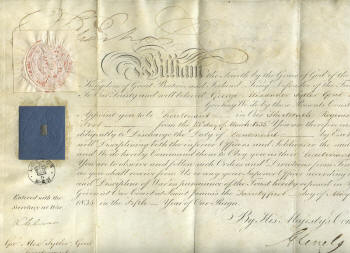 William the Fourth by the Grace of God of the
Kingdom of Great Britain and Ireland King Defender of the
To Our Trusty and well beloved George Alexander Tytler Gent
Greeting We do by these Presents Const
Appoint you to be Lieutenant in Our Regiment
from the day of May 1835. You are therefore
diligently to Discharge the Duty of Lieutenant by
well Disciplining both the inferior Officers and Soldiers
and We do hereby Command them to Obey you as their Lieutenant
You to observe and follow such Orders and Directions from
as you shall receive from Us or any your Superior Officer according
and Discipline of War in pursuance of the Trust hereby reposed in
Given at Our Court at Saint James's the Twenty first day of May
1835 in the Fifth Year of Our Reign
Entered with the
Secretary at War
By His Majesty's Com
Geo. Alexr. Tytler Gent